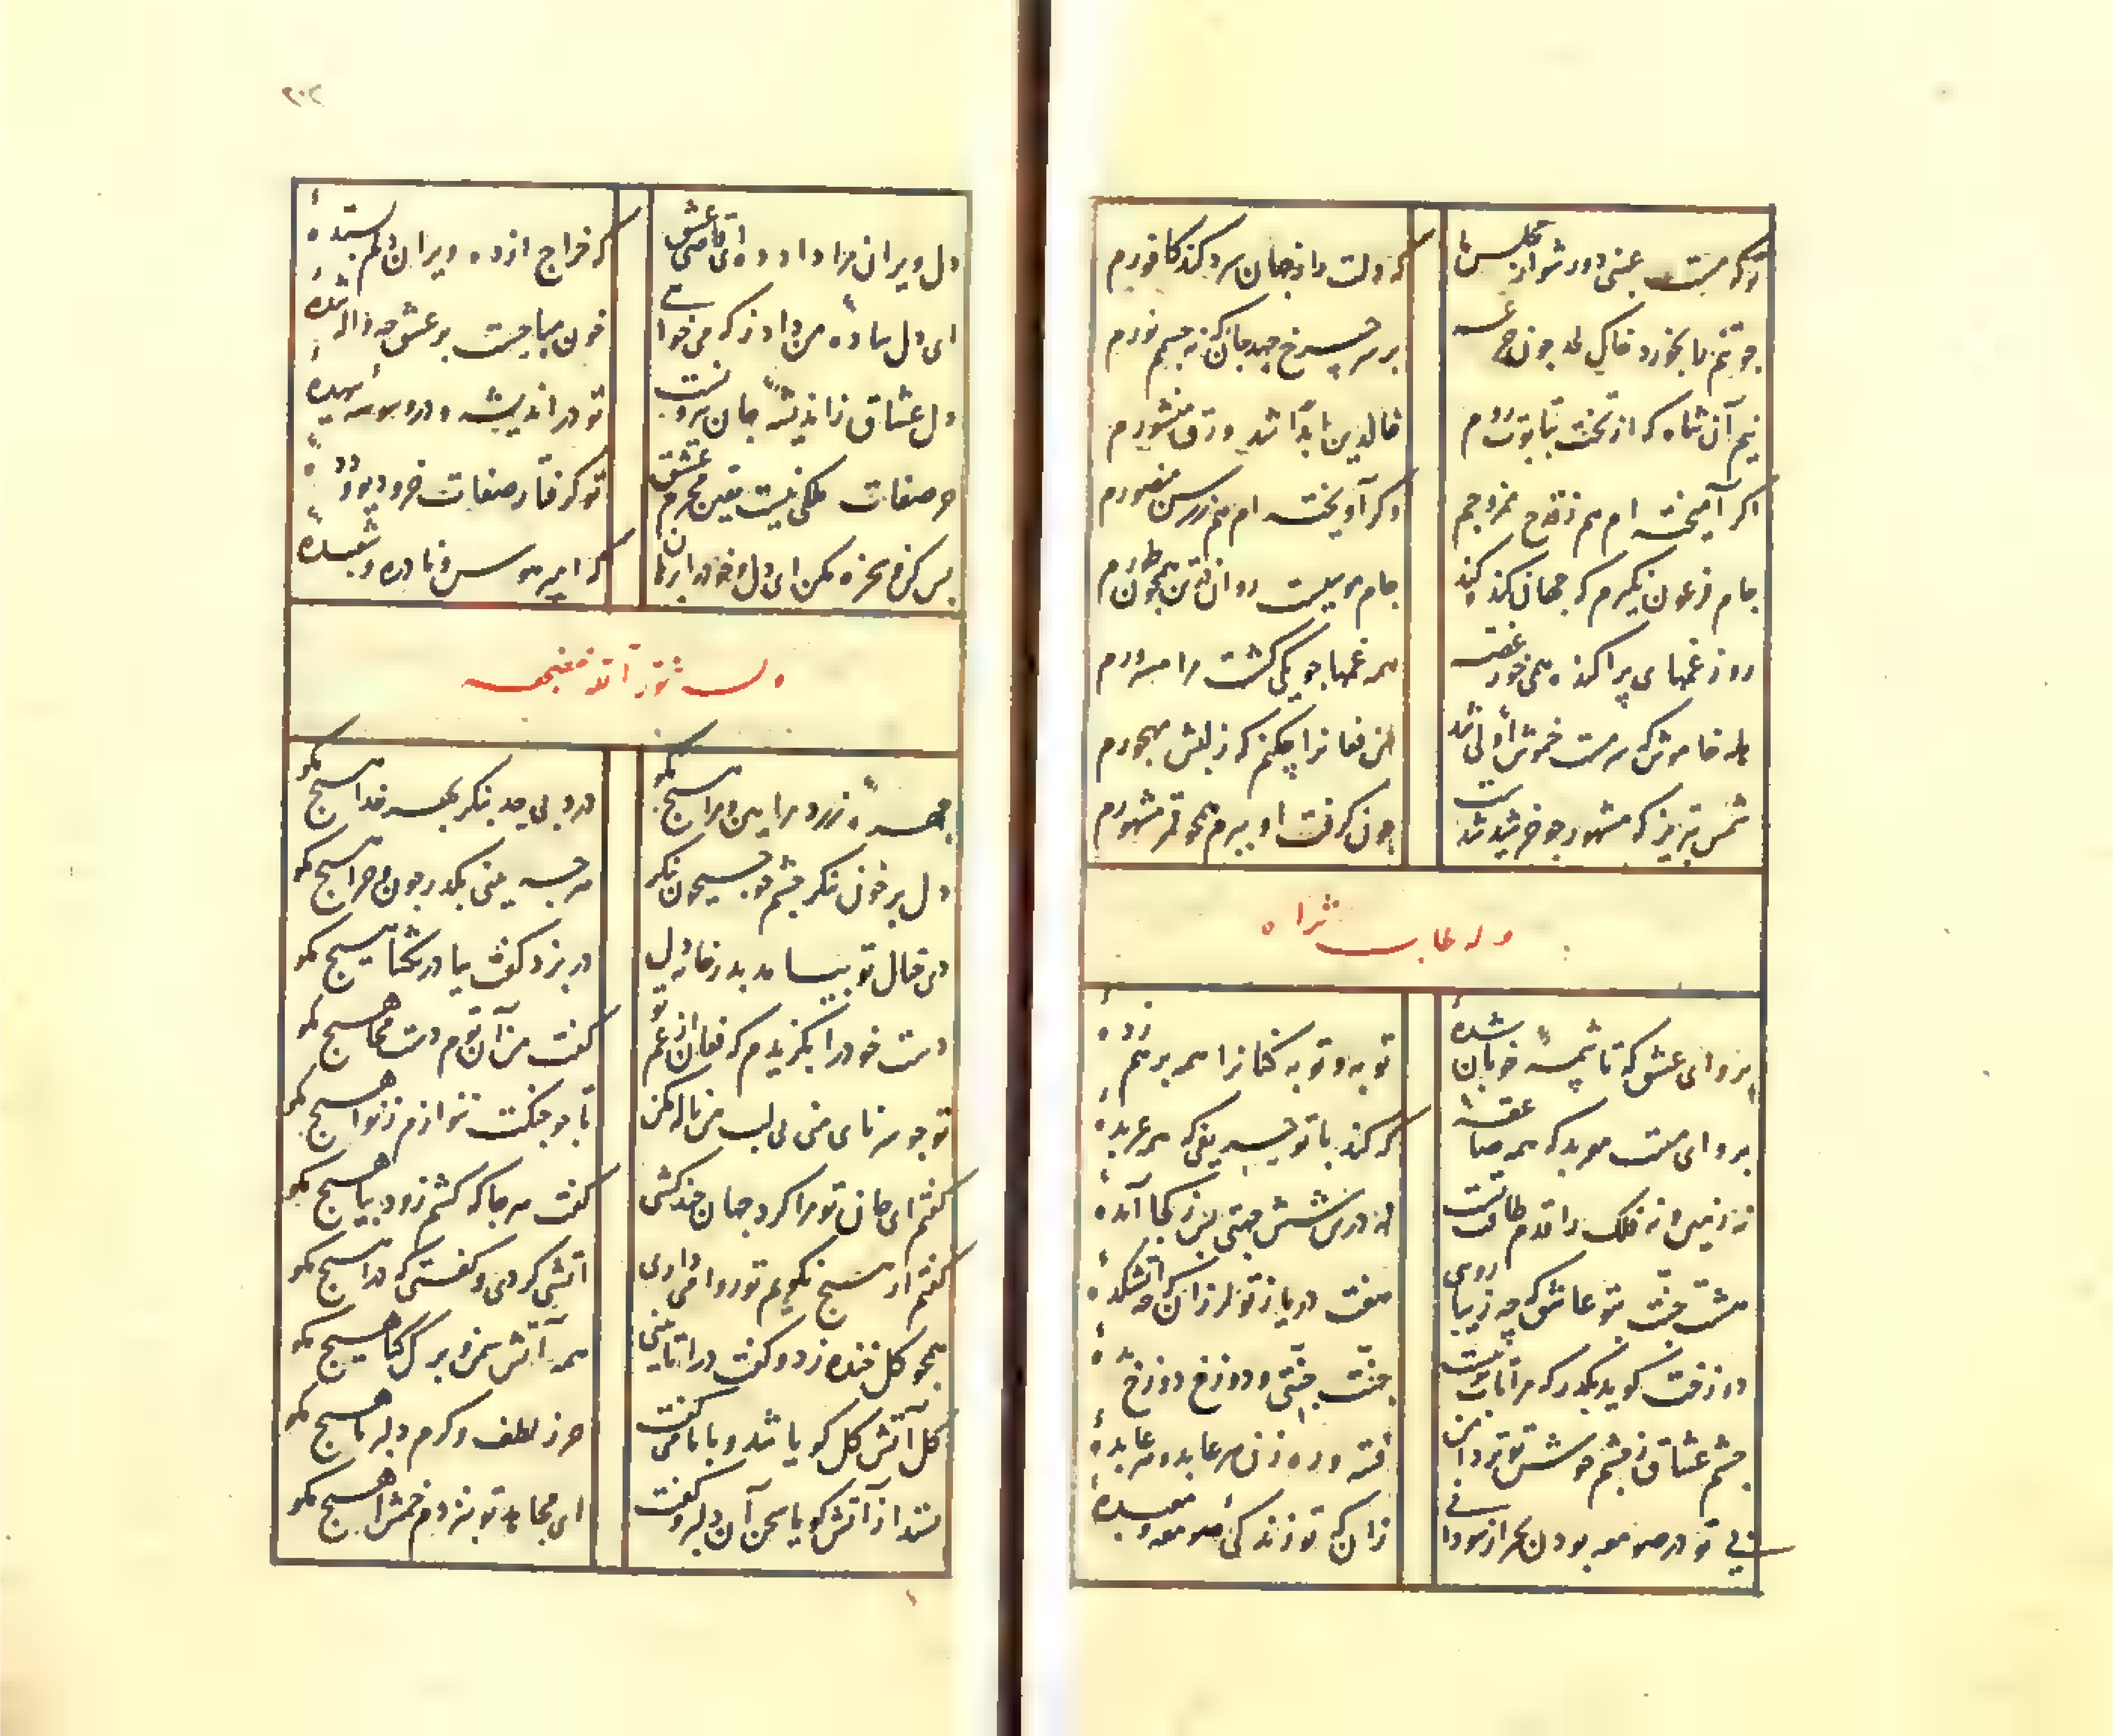 وگر مست عنبی دور شو از مجلس ما
که دلت را ز جهان سرد کند کافورم
چو تنم را بخورد خاک لحد چون جرعه
بر سر چرخ جهد جان که نه جسمم نورم
نیم آن شاه که از تخت بتابوت روم
خالدین ابدا شد ورق منشورم
اگر آمیخته ام هم ز قدح ممزوجم
وگر آویخته ام هم رسن منصورم
جام فرعون نگیرم که جهان گنده کند
جام موسیست روان در تن همچون طورم
رو ز غمهای پراکنده همی خور غصه
همه غمها چو یکی گشت مرا مسرورم
هله خاموش که سرمست خموش اولی شد
من فغان را چکنم که ز لبش مهجورم
شمس تبریز که مشهور چو خورشید شدست
چون گرفت او ببرم همچو قمر مشهورم
وله طاب ثراه
برو ای عشق که تا شحنه خوبان شده
توبه و توبه کنانرا همه بر هم زده
برو ای مست معربد که همه صاعقه
که کند با تو حریفی که همه عربده
نه زمین و نه فلک را قدم طاقت تست
نه درین شش جهتی پس ز کجا آمده
هشت جنت بتو عاشق که چه زیبا رویی
هفت دریا ز تو لرزان که چه آتشکده
دوزخت گوید بگذر که مرا تاب تو نیست
جنت جنتی و دوزخ دوزخ
چشم عشاق ز چشم خوش تو تردامن
فتنه و ره زن هر عابد و هر عابده
بی تو در صومعه بودن بجز از سودا نی
زان که تو زندگی صومعه و معبده
۲۰۲
دل ویران مرا داد ده ای قاضی عشق
که خراج از ده ویران دلم بستده
ای دل ساده من داد ز که می خواهی
خون مباحست بر عشق چه زاله شده
دل عشاق ز اندیشه جان بیرونست
تو در اندیشه و در وسوسه بیهده
جز صفات ملکی نیست یقین محرم عشق
تو گرفتار صفات خر و دیو و دده
بس کن و سخره مکن ای دل و خود را برهان
که اسیر هوس و نادره و شعبده
وله نور الله مضجعه
چهره زرد مرا بین و مرا هیچ مگو
درد بی حد بنگر بهر خدا هیچ مگو
دل پر خون بنگر چشم چو جیحون بنگر
هرچه بینی بگذر چون و چرا هیچ مگو
دی خیال تو بیامد بدر خانه دل
در بزد گفت بیا در بگشا هیچ مگو
دست خود را بگزیدم که فغان از غم تو
گفت من آن توم دست مخا هیچ مگو
تو چو سرنای منی بی لب من ناله مکن
تا چو چنگت ننوازم ز نوا هیچ مگو
گفتم این جان تو مرا گرد جهان چند کشی
گفت هر جا که کشم زود بیا هیچ مگو
گفتم ار هیچ نگویم تو روا می داری
آتشی گردی و گفتی که درا هیچ مگو
همچو گل خنده زد و گفت درا تا بینی
همه آتش سمن و برگ گیا هیچ مگو
کل آتش گل گویا شد و با ما می گفت
جز ز لطف و کرم دلبر ما هیچ مگو
بستد از آتش گویا سخن آن دلبر و گفت
ای مجابات تو نزدم خمش هیچ مگو